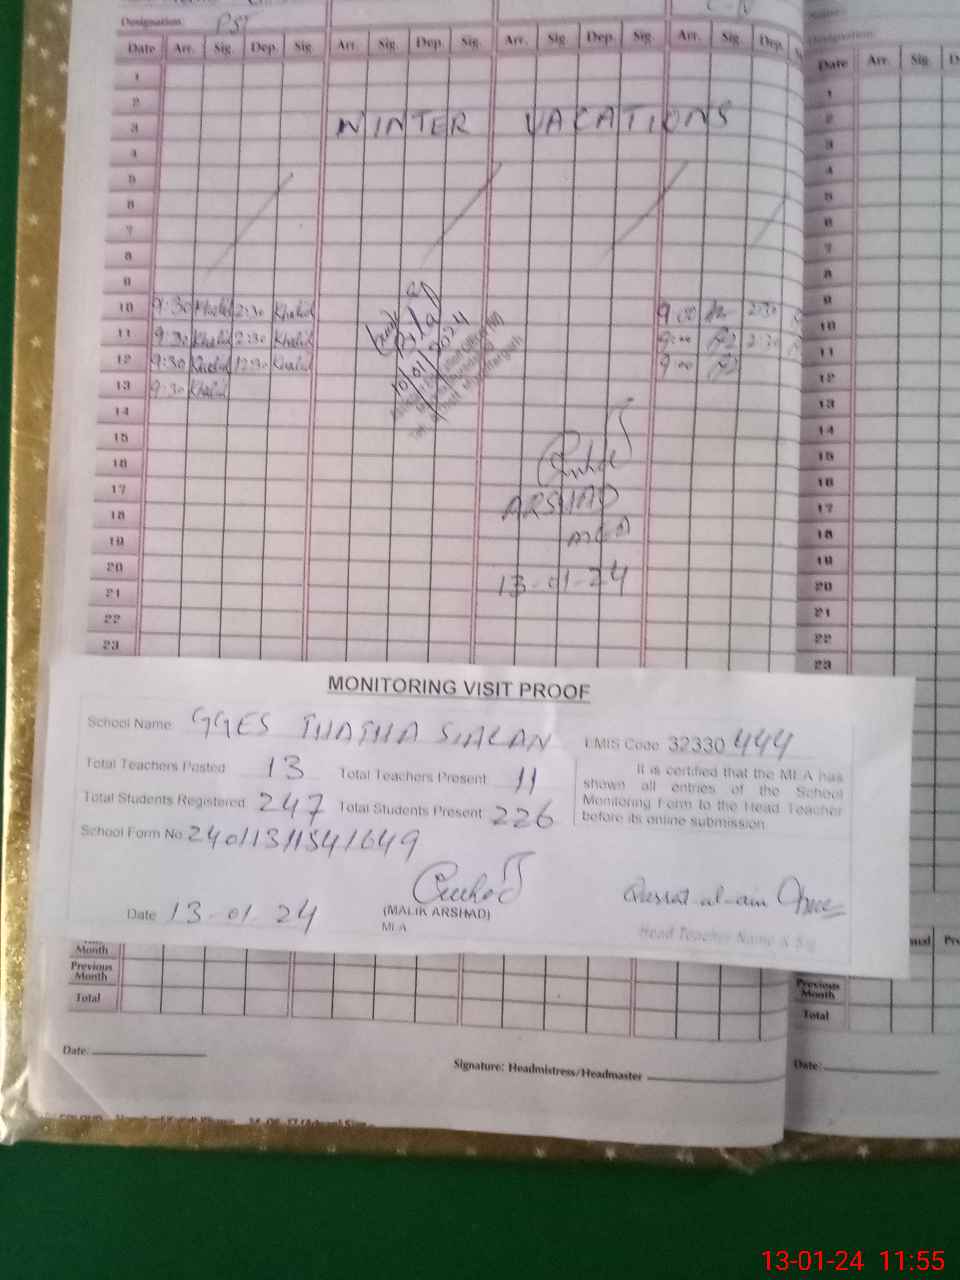 Designation: PST
Date Arr. Sig. Dep. Sig. Arr. Sig. Dep. Sig. Arr. Sig. Dep. Sig. Arr. Sig. Dep.
Date Arr. Sig.
1
2
3 WINTER VACATIONS
4
5
6
7
8
9
10 9:30 Khalid 2:30 Khalid 9:00 2:30
11 9:30 Khalid 2:30 Khalid 9:00 2:30
12 9:30 Khalid 12:30 Khalid 9:00
13 9:30 Khalid
14
15
16
17 ARSHAD
18
19
20
21 13-01-24
22
23
1
2
3
4
5
6
7
8
9
10
11
12
13
14
15
16
17
18
19
20
21
22
23
10/01/2024
MONITORING VISIT PROOF
School Name GGES THATHA SIALAN EMIS Code 32330444
Total Teachers Posted 13 Total Teachers Present 11
Total Students Registered 247 Total Students Present 226
It is certified that the MEA has
shown all entries of the School
Monitoring Form to the Head Teacher
before its online submission
School Form No 24011311541649
Date 13-01-24
(MALIK ARSHAD)
MEA
Qurrat-ul-ain
Head Teacher Name & Sig
Month
Previous Month
Total
Date:
Signature: Headmistress/Headmaster
Previous Month
Total
Date:
13-01-24 11:55